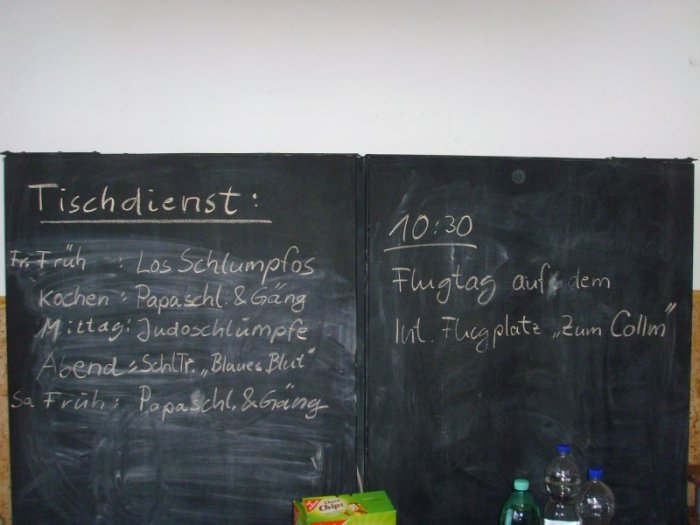 Tischdienst:
Fr. Früh : Los Schlumpfos
Kochen : Papaschl. & Gäng
Mittag: Judoschlümpfe
Abend : SchlTr. „Blaues Blut"
Sa Früh : Papaschl. & Gäng
10:30
Flugtag auf dem
Int. Flugplatz „Zum Collm"
Chips